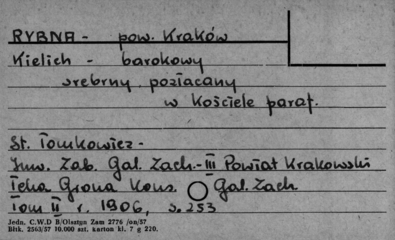 RYBNA - pow. Kraków
Kielich - barokowy
srebrny pozłacany
w Kościele paraf.
St. Tomkowicz -
Inw. Zab. Gal. Zach.-III Powiat Krakowski
Teka Grona Kons. Gal. Zach
Tom II r. 1906, s. 253
Jedn. C.W.D B/Olsztyn Zam 2776 /on/57
Bltk. 2563/57 10.000 szt. karton kl. 7 g 220.